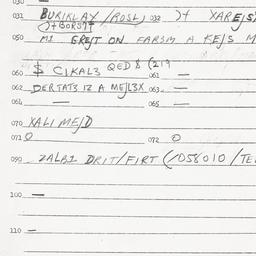 030 —
031 BURIKLAY/ROSL) 032 )+ XAREJS
()+BORSIT
050 MI EREJT ON FARSM A KEJS M
060 $ CIKAL3 QED 8 (219 061 —
062 DERTATS IZ A MEJL3X 063 —
064 — 065 —
070 XALIMEJD
071 O 072 O
090 ZALBI DRIT/FIRT (/058010/TE
100 —
110 —